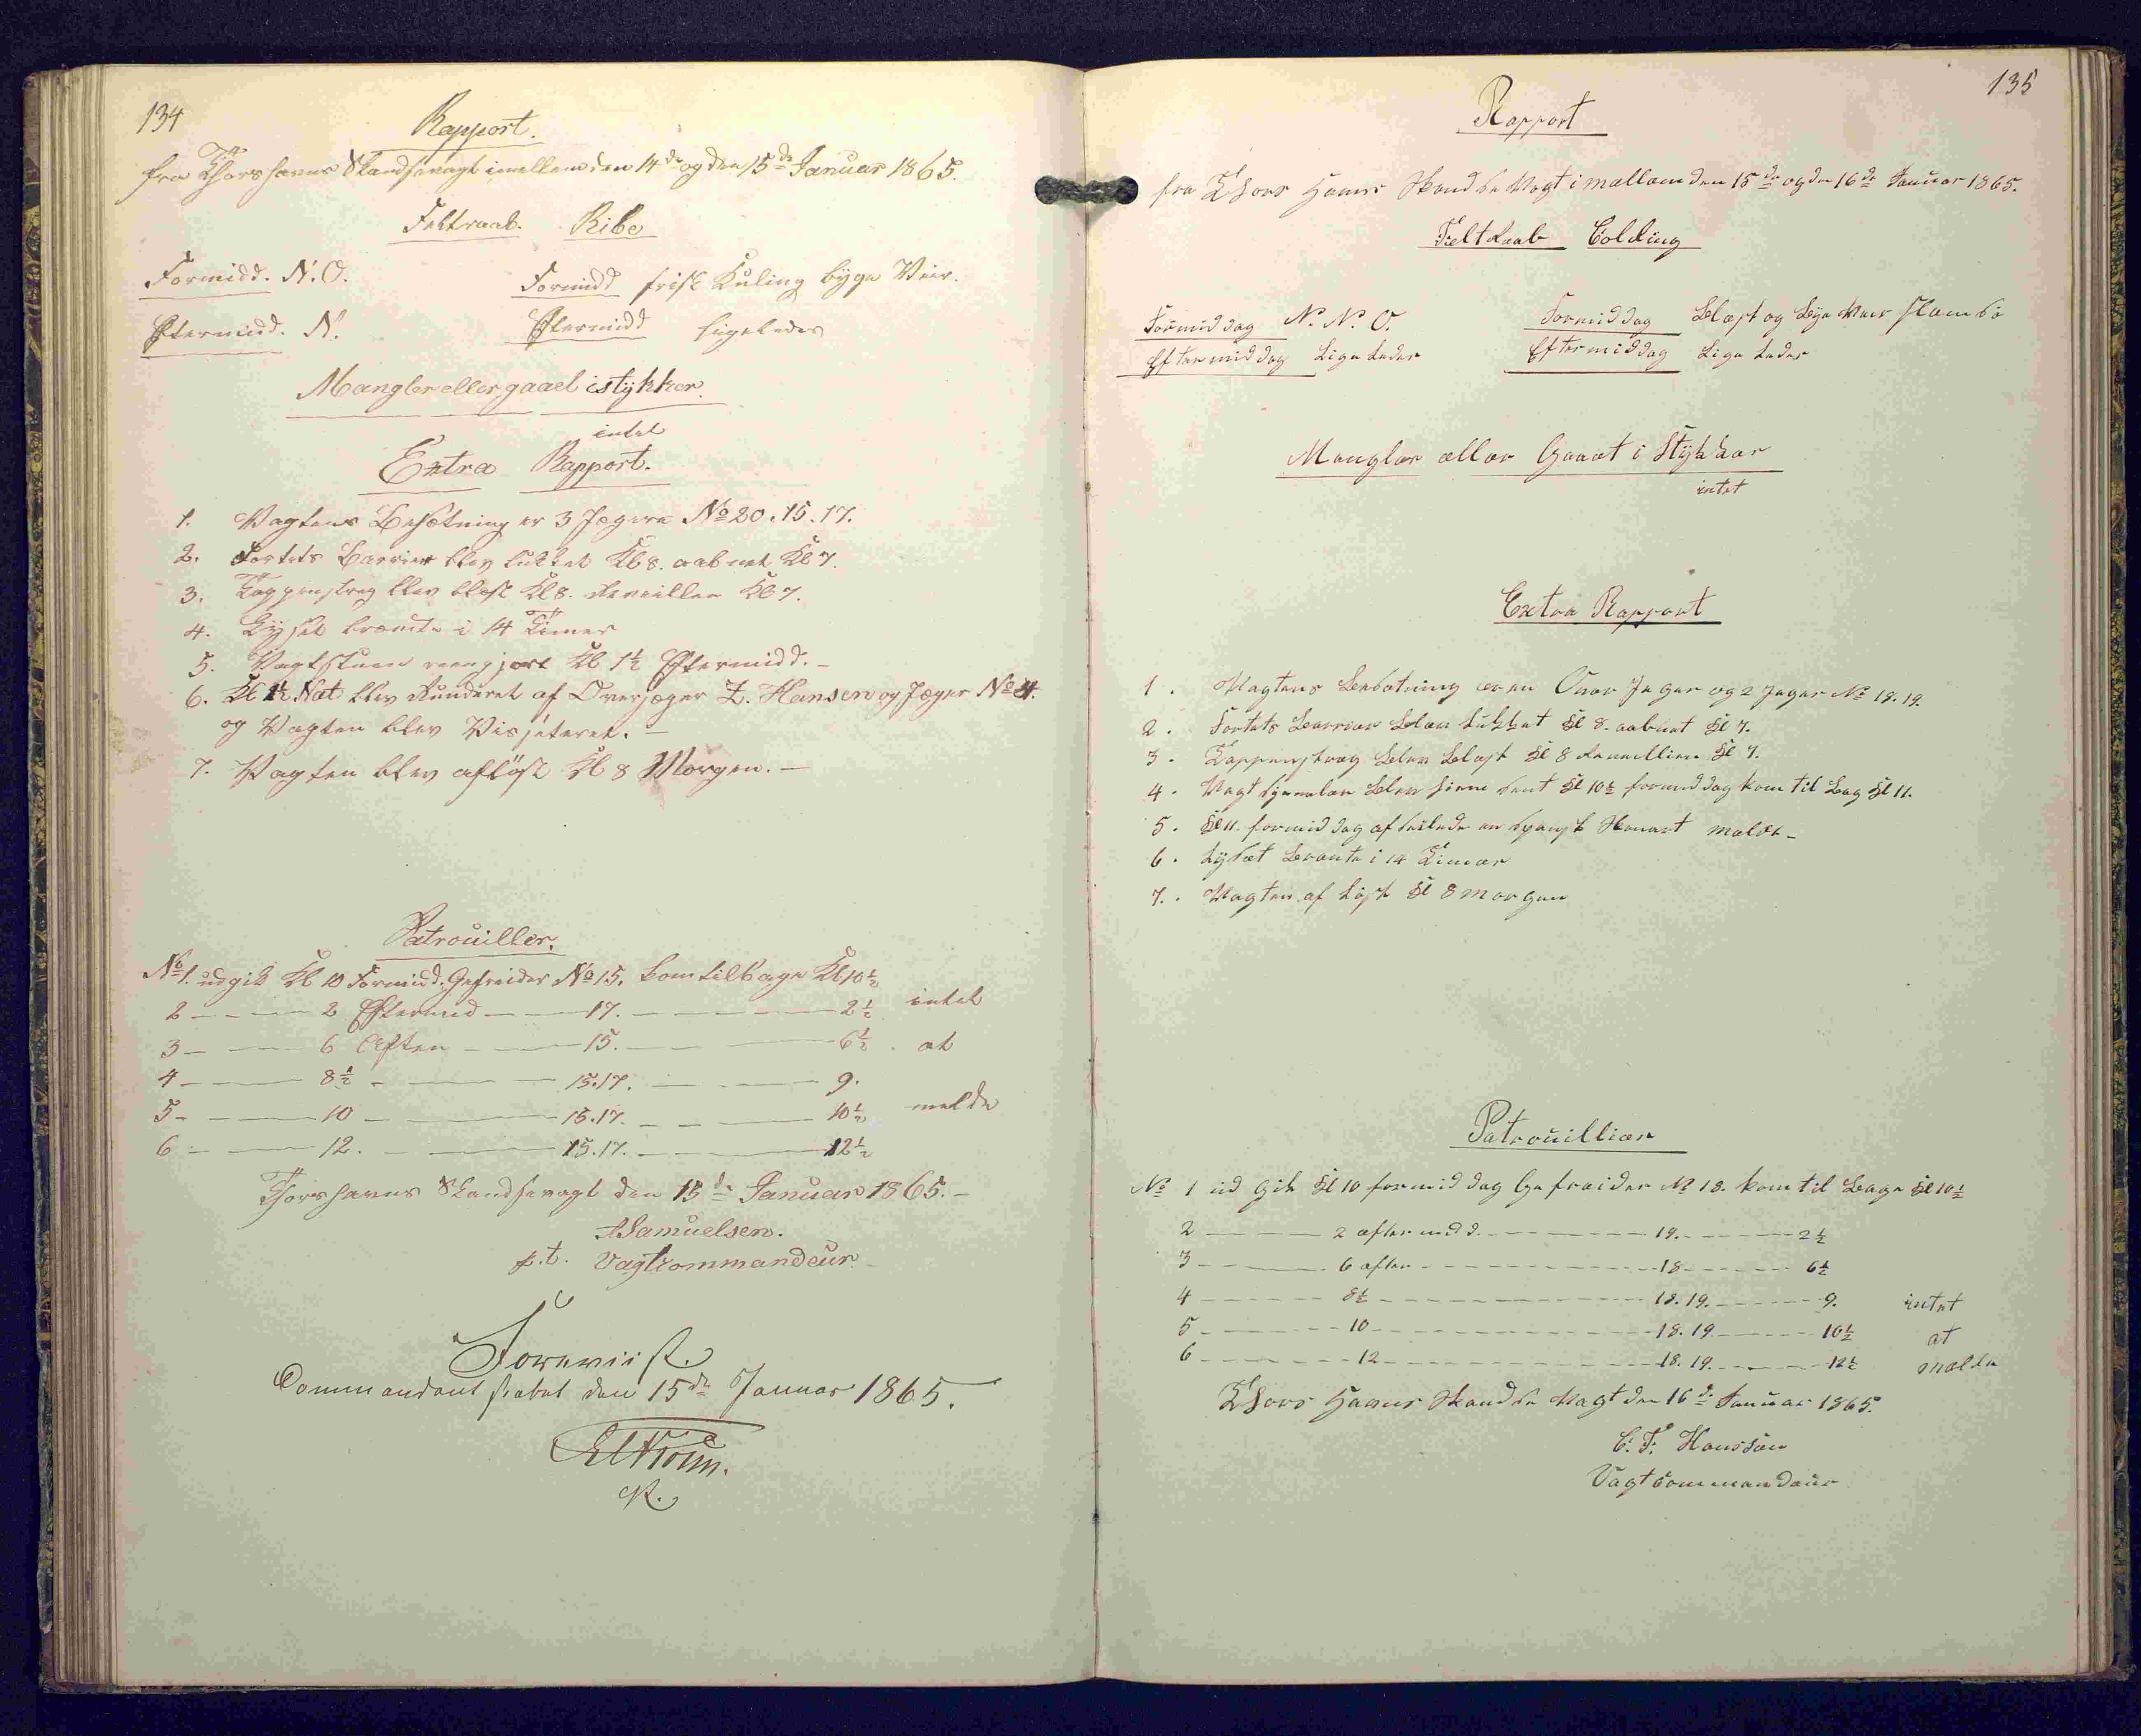 134
Rapport.
fra Thorshavns Skandsevagt imellem den 14de og den 15de Januar 1865.
Feltraab. Ribe
Formidd. N.O. Formidd frisk Kuling byge Veir.
Eftermidd. N. Eftermidd ligeledes
Mangler eller gaael istykker.
intet
Extra Rapport.
1. Vagtens Besætning er 3 Jægere No 20. 15. 17.
2. Fortets Barrier blev lukket Kl 8. aabnet Kl 7.
3. Tappenstreg blev blæst Kl 8. Reveillen Kl 7.
4. Lyset brændte i 14 Timer
5. Vagtstuen reengjort Kl 1½ Eftermidd. –
6. Kl 1½ Nat blev Runderet af Overjæger Z. Hansen og Jæger No 4.
og Vagten blev Visiteret. –
7. Vagten blev afløst Kl 8 Morgen. –
Patrouiller.
No 1. udgik Kl 10 Formidd. Gefreider No 15. kom tilbage Kl 10½
2 – – – 2 Eftermid – – 17. – – – 2½ intet
3 – – – 6 Aften – – 15. – – – 6½. at
4 – – – 8½ – – – 15.17. – – – 9.
5 – – – 10 – – – 15.17. – – – 10½ melde
6 – – – 12. – – – 15.17. – – – 12½
Thorshavns Skandsevagt den 15de Januar 1865. –
A Samuelsen.
p.t. Vagtcommandeur.
Foreviist.
Commandantskabet den 15de Januar 1865.
135
Rapport
fra Thors Havns Skandse Vagt imellem den 15de og den 16de Januar 1865.
Felt Raab Colding
Formiddag N. N. O. Formiddag Blæst og Byge Veir
Eftermiddag Lige ledes Eftermiddag Lige ledes
Mangler eller Gaaet i Stykker
intet
Extra Rapport
1. Vagtens Besætning er en Over Jæger og 2 Jæger No 18. 19.
2. Fortets Barrier blev lukket Kl 8. aabnet Kl 7.
3. Tappenstreg blev blæst Kl 8 Reveillien Kl 7.
4. Vagt kom til Bag Kl 11.
5. Kl 11. formiddag afseilede en Spansk meldt –
6. Lyset brænte i 14 Timer
7. Vagten af løst Kl 8 morgen
Patrouillier
No 1 ud gik Kl 10 formiddag Gefreider No 18. kom til Bage Kl 10½
2 – – – 2 eftermidd. – – – 19. – – – 2½
3 – – – 6 aften – – – 18 – – – 6½
4 – – – 8½ – – – 18. 19. – – – 9. intet
5 – – – 10 – – – 18. 19. – – – 10½ at
6 – – – 12 – – – 18. 19. – – – 12½ melde
Thors Havns Skandse Vagt den 16de Januar 1865.
C. F. Hanssen
Vagtcommandeur